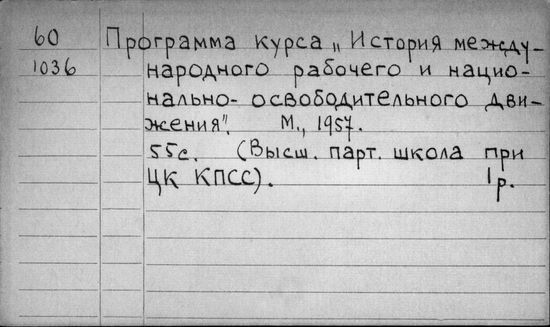 60 Программа курса „История между-
1036 народного рабочего и нацио-
нально-освободительного дви-
жения". М., 1957.
55с. (Высш. парт. школа при
ЦК КПСС). 1р.